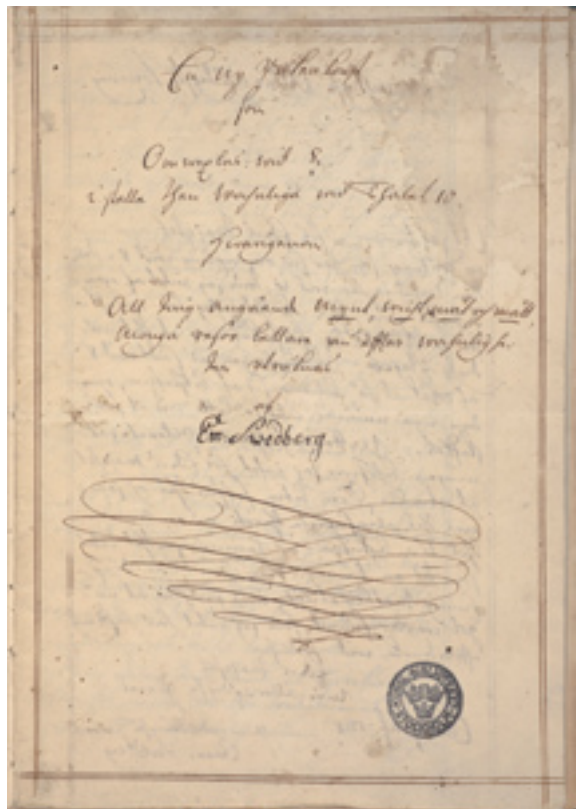 En ny Rekenkonst
som
Omwexlas wid 8.
i stelle then Wahnliga wid Thalet 10.
Hwarigenom
All ting angående Mynt, wicht, mål och mått,
monga resor lettare än effter wahnlighe-
ten utreknas
af
Em Swedberg.
STOCKHOLM